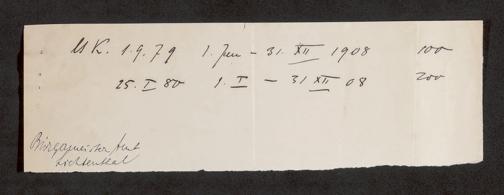 M K. 1.9.79 1. Jun – 31. XII 1908 100
25. I 80 1. I – 31 XII 08 200
Bürgermeister Amt
Lichtental